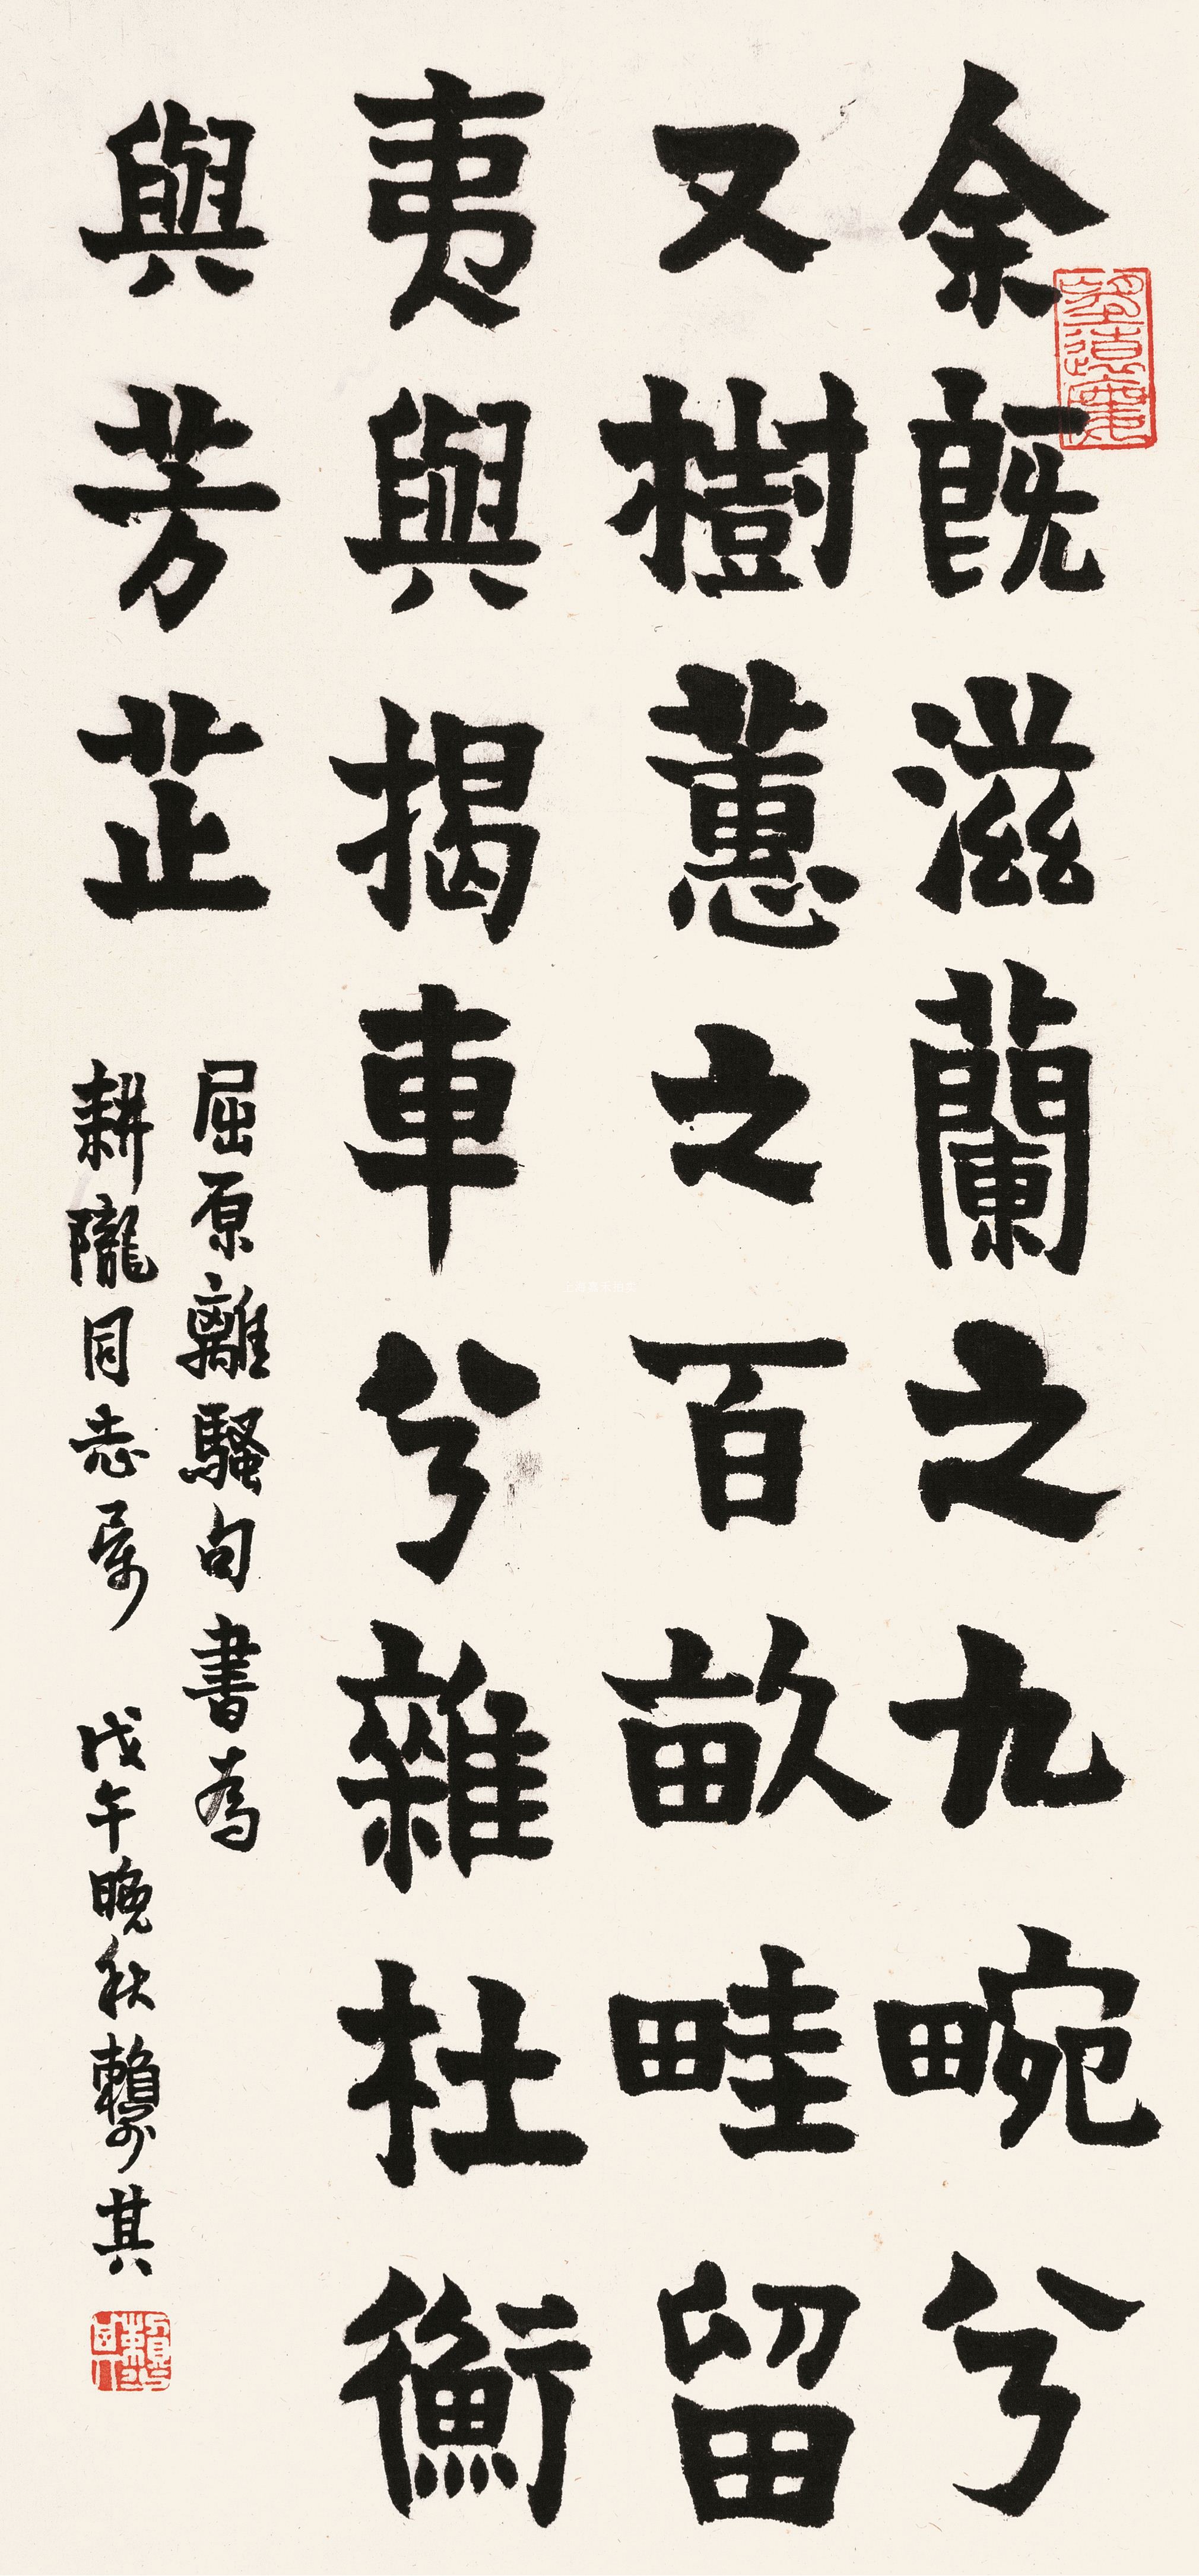 余既滋蘭之九畹兮
又樹蕙之百畝畦留
夷與揭車兮雜杜衡
與芳芷
屈原離騷句書為
耕隴同志屬 戊午晚秋賴少其